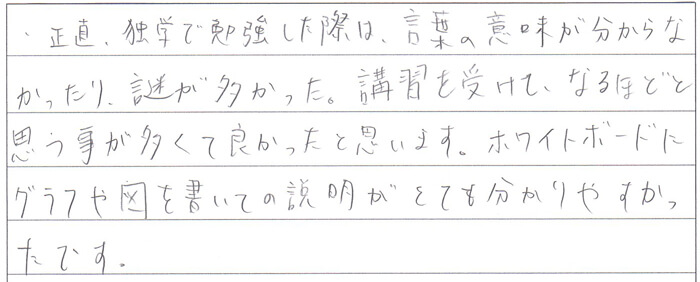 ・正直、独学で勉強した際は、言葉の意味が分からな
かったり、謎が多かった。講習を受けて、なるほどと
思う事が多くて良かったと思います。ホワイトボードに
グラフや図を書いての説明がとても分かりやすかっ
たです。